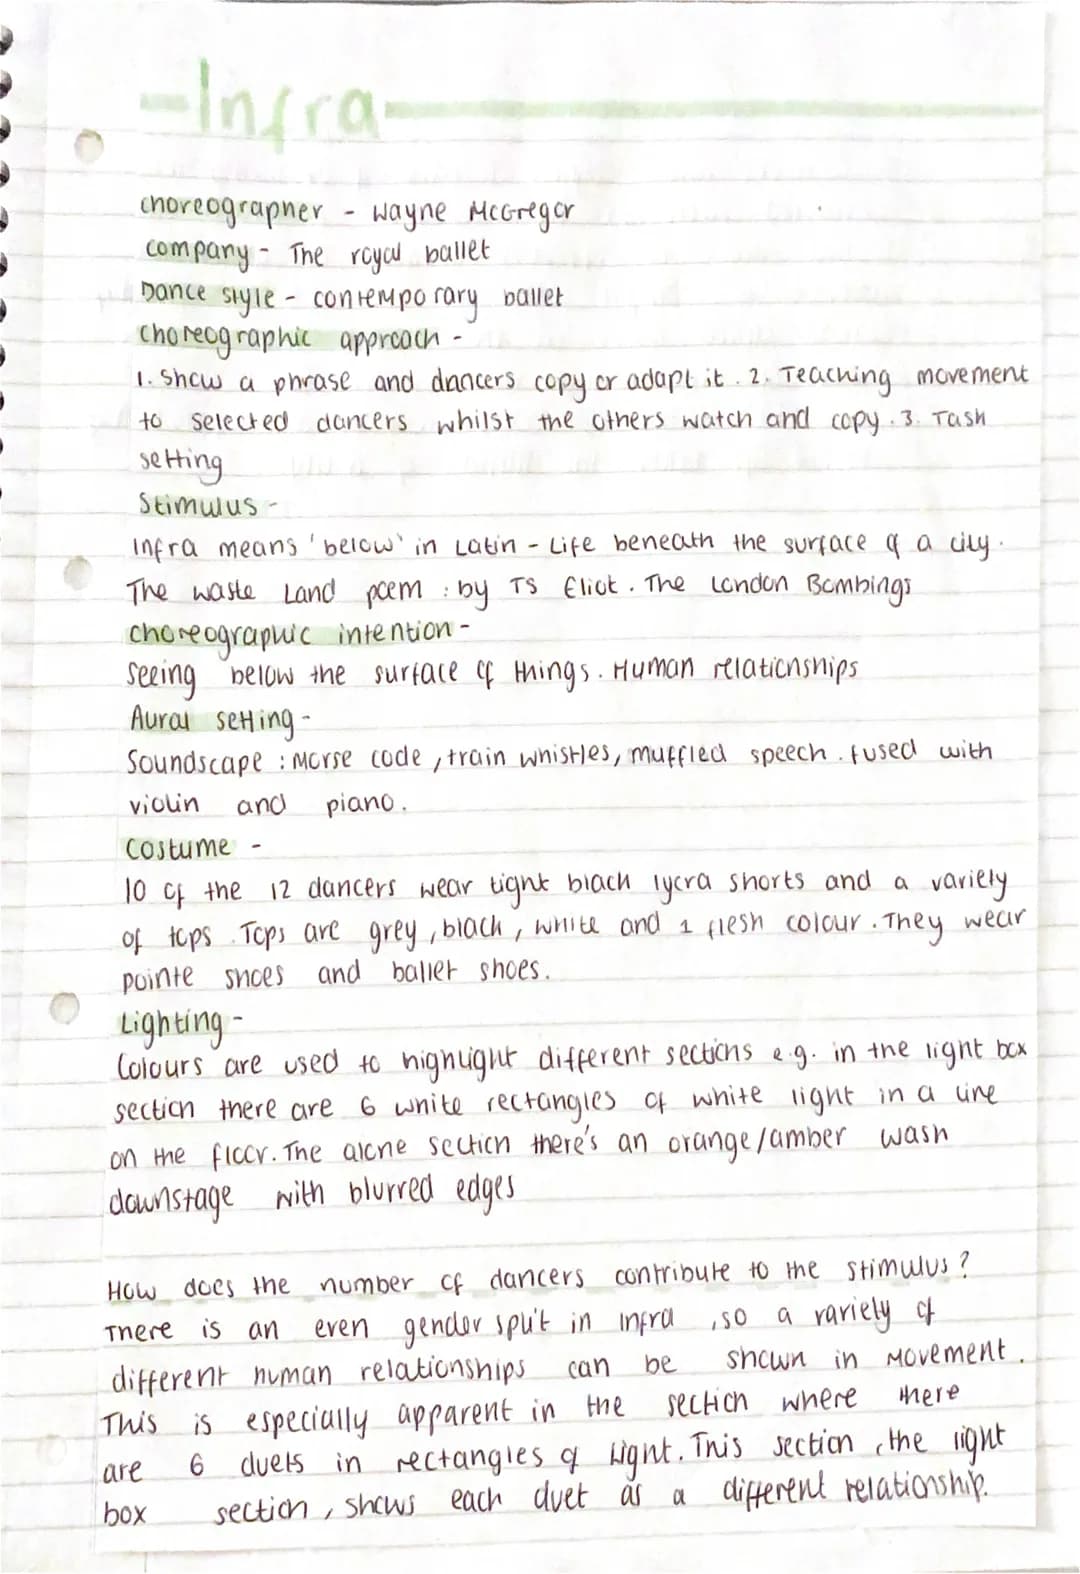 -Infra-
choreographer - Wayne McGregor
company - The royal ballet
Dance style - contemporary ballet
choreographic approach -
1. Show a phrase and dancers copy or adapt it. 2. Teaching movement
to selected dancers whilst the others watch and copy. 3. Task
setting
Stimulus -
Infra means 'below' in Latin - Life beneath the surface of a city.
The waste Land poem : by TS Eliot. The London Bombings
choreographic intention -
Seeing below the surface of things. Human relationships
Aural setting -
Soundscape : Morse code, train whistles, muffled speech. fused with
violin and piano.
Costume -
10 of the 12 dancers wear tight black lycra shorts and a variety
of tops. Tops are grey, black, white and 1 flesh colour. They wear
pointe shoes and ballet shoes.
Lighting -
Colours are used to highlight different sections e.g. in the light box
section there are 6 white rectangles of white light in a line
on the floor. The alone section there's an orange/amber wash
downstage with blurred edges
How does the number of dancers contribute to the stimulus?
There is an even gender split in infra, so a variety of
different human relationships can be shown in movement.
This is especially apparent in the section where there
are 6 duets in rectangles of light. This section, the light
box section, shows each duet as a different relationship.